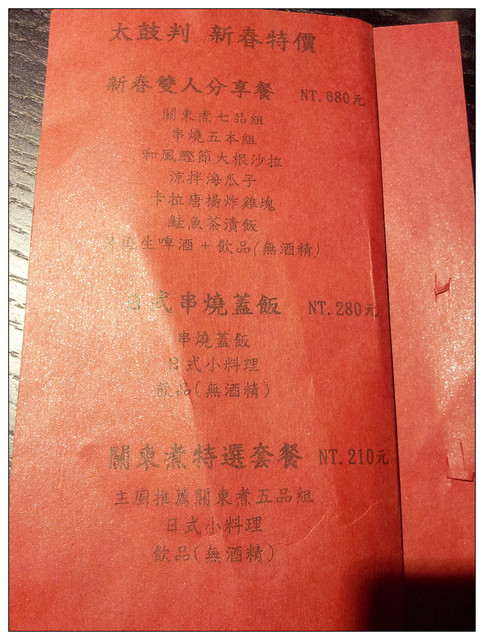 太鼓判 新春特價
新春雙人分享餐 NT.680元
關東煮七品組
串燒五本組
和風鰹節大根沙拉
涼拌海瓜子
卡拉唐揚炸雞塊
鮭魚茶漬飯
生啤酒 + 飲品(無酒精)
日式串燒蓋飯 NT.280元
串燒蓋飯
日式小料理
飲品(無酒精)
關東煮特選套餐 NT.210元
主廚推薦關東煮五品組
日式小料理
飲品(無酒精)